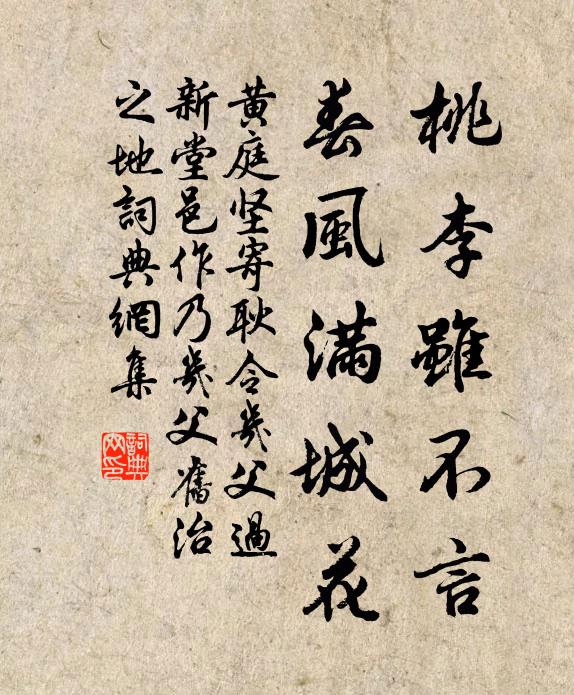 桃李雖不言
春風滿城花
黄庭坚寄耿令幾父過
新堂邑作乃幾父舊治
之地詞典網集
詞典網印